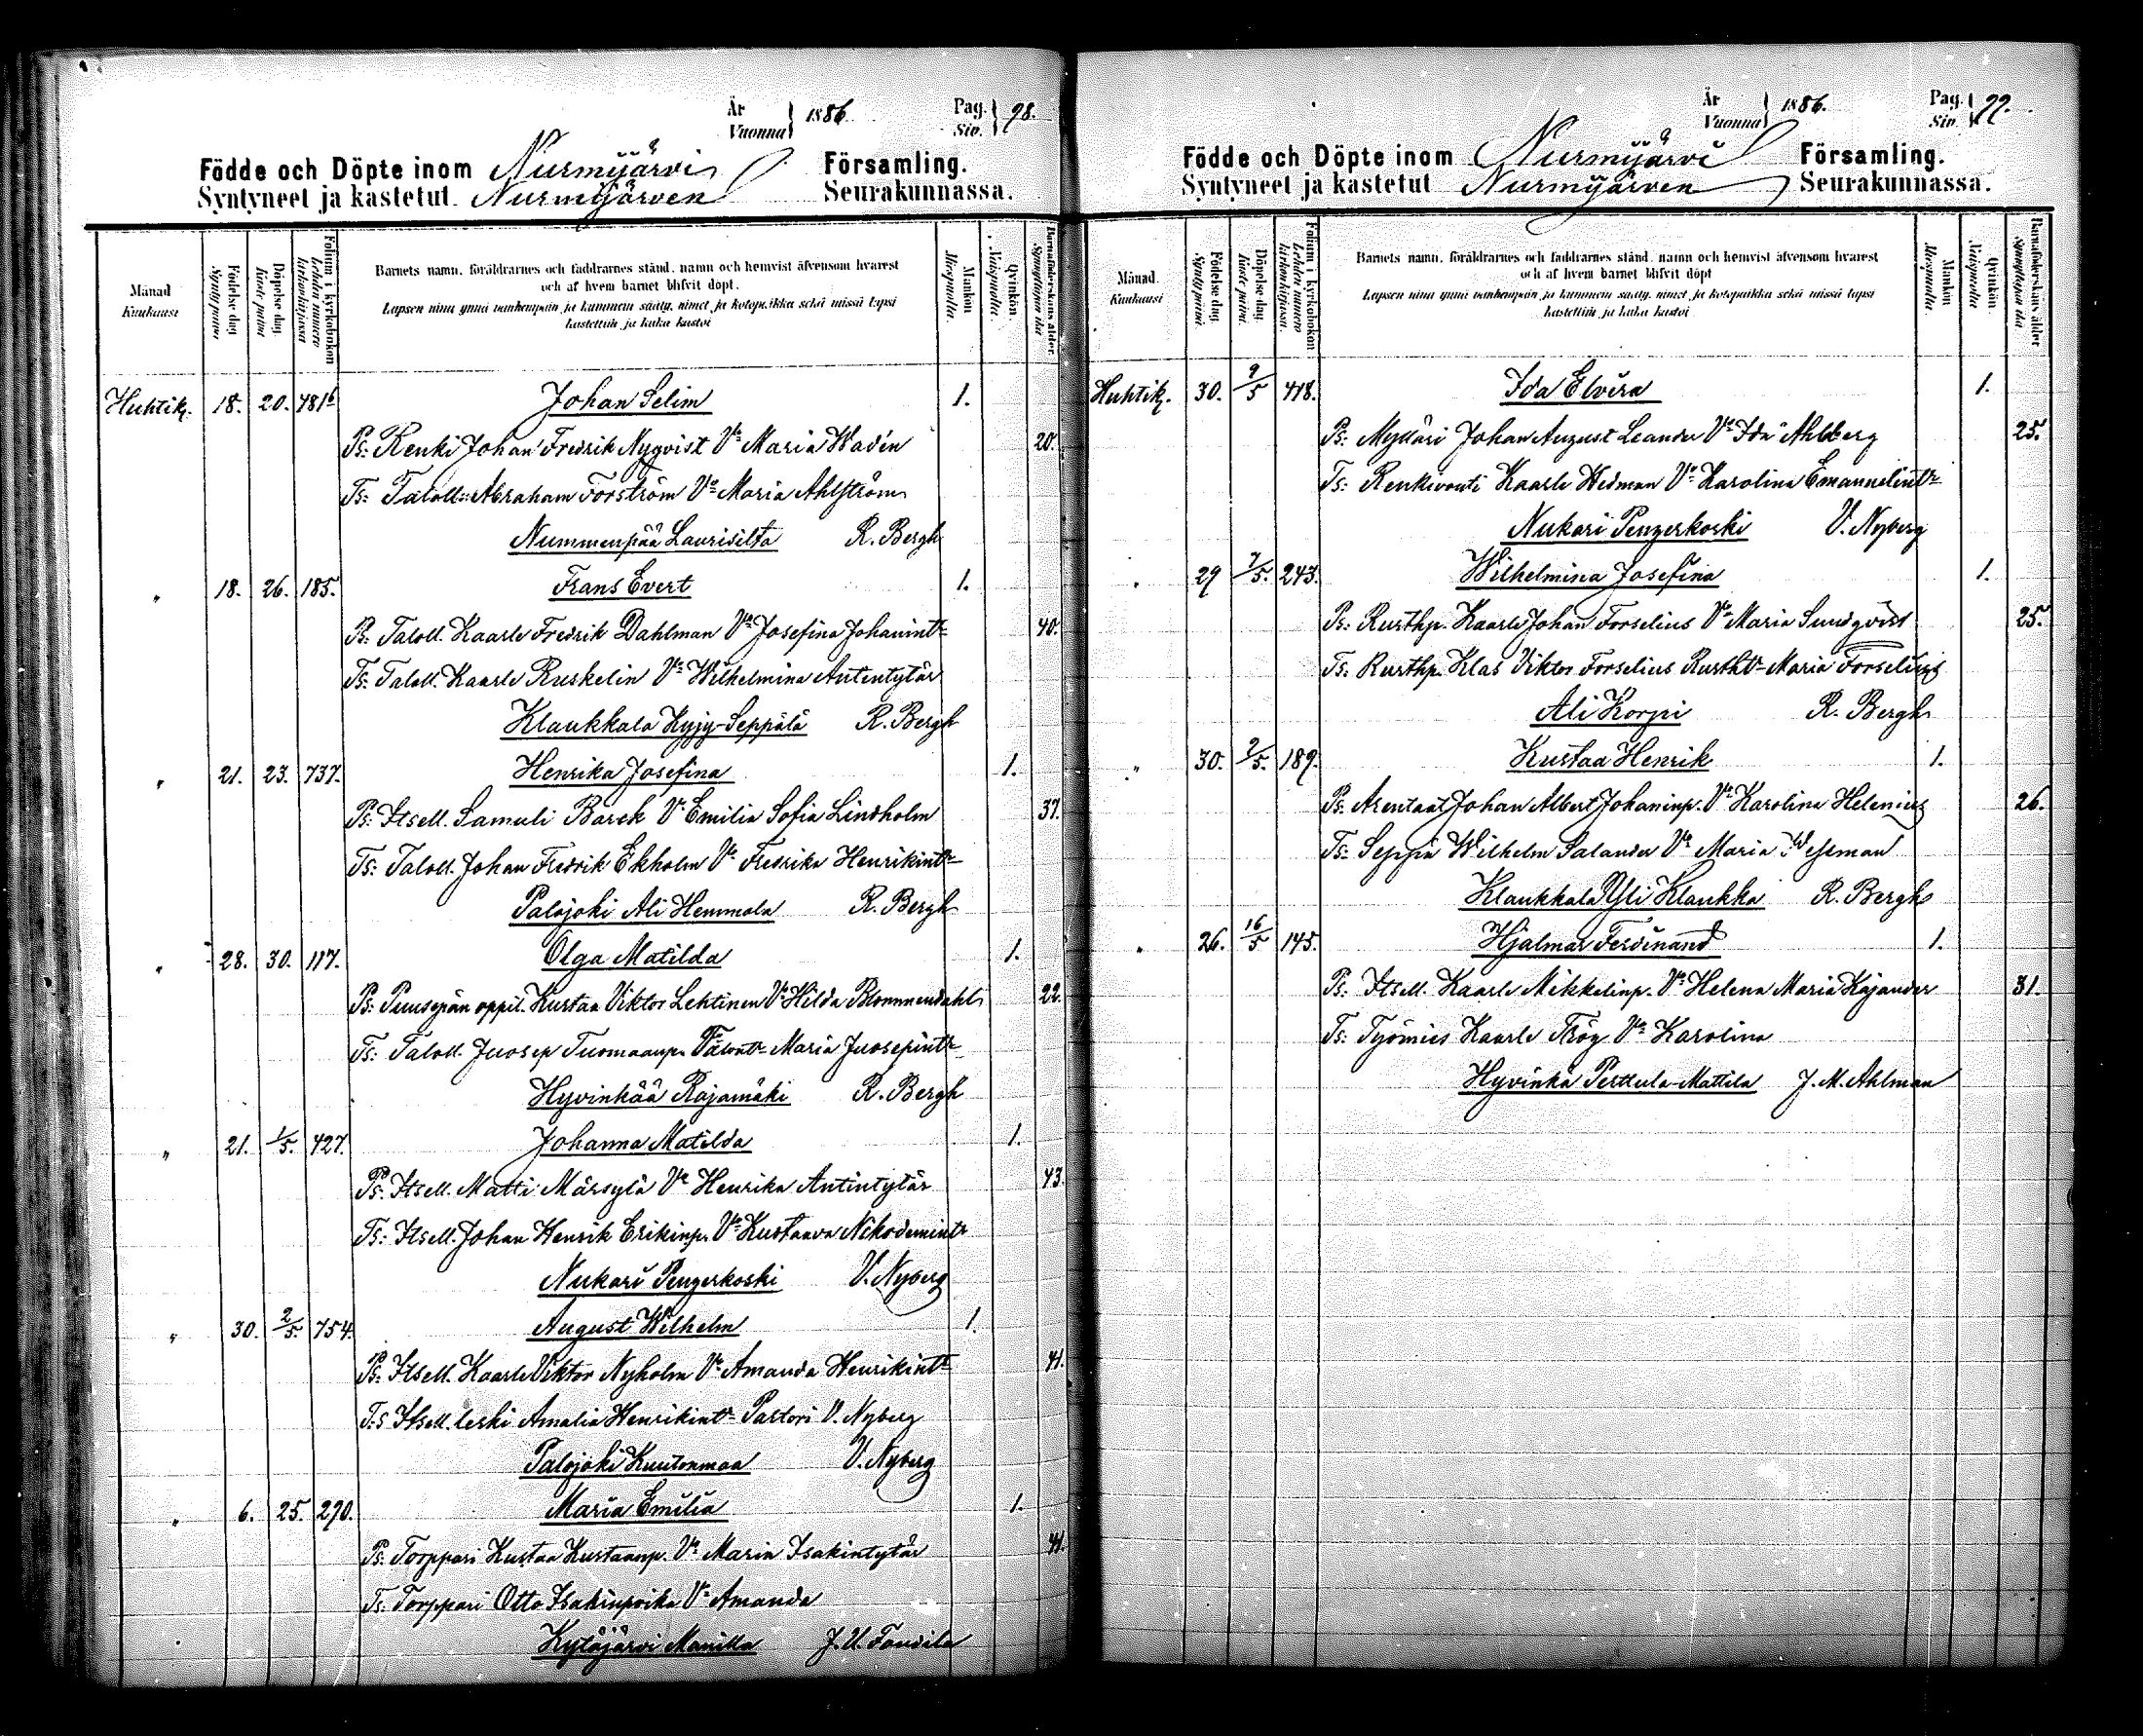 År Vuonna 1886 Pag. Siv. 98.
Födde och Döpte inom Nurmijärvi Församling.
Syntyneet ja kastetut Nurmijärven Seurakunnassa.
Månad Kuukausi
Födelse dag. Syntypäivä
Döpelse dag. Kaste päivä
Folium i kyrkoboken Lehden numero kirkonkirjassa
Barnets namn, föräldrarnes och faddrarnes stånd, namn och hemvist äfvensom hvarest
och af hvem barnet blifvit döpt.
Lapsen nimi ynnä vanhempain ja kummein sääty, nimet ja kotopaikka sekä missä lapsi
kastettiin ja kuka kastoi
Mankön Miespuolta.
Qvinkön. Naispuolta.
Barnaföderskans ålder. Synnyttäjän ikä
Huhtik. 18. 20. 781b Johan Selim 1.
Ps: Renki Johan Fredrik Nyqvist Vo Maria Wadén 20.
Ts: Taloll: Abraham Forström Vo Maria Ahlström
Nummenpää Laurisilta R. Bergh
" 18. 26. 185. Frans Evert 1.
Ps: Taloll. Kaarle Fredrik Dahlman Vo Josefina Johanintr 40.
Ts: Taloll. Kaarle Ruskelin Vo Wilhelmina Antentytär
Klaukkala Kyjy-Seppälä R. Bergh
" 21. 23. 737. Henrika Josefina 1.
Ps: Itsell. Samuli Barck Vo Emilia Sofia Lindholm 37.
Ts: Taloll. Johan Fredrik Ekholm Vo Fredrika Henrikintr
Palojoki Ali Hemmola R. Bergh
" 28. 30. 117. Olga Matilda 1.
Ps: Puusepän oppil. Kustaa Viktor Lehtinen Vo Hilda Blommendahl 22.
Ts: Taloll. Juosep Tuomaanp. Talontr Maria Juosepintr
Hyvinkää Rajamäki R. Bergh
" 21. 1/5. 427. Johanna Matilda 1.
Ps: Itsell. Matti Märsylä Vo Henrika Antintytär 43.
Ts: Itsell. Johan Henrik Erikinp. Vo Kustaava Nikodemintr
Nukari Pengerkoski V. Nyberg
" 30. 2/5. 754. August Wilhelm 1.
Ps: Itsell. Kaarle Viktor Nyholm Vo Amanda Henrikintr 41.
Ts Itsell. leski Amalia Henrikintr Pastori V. Nyberg
Palojoki Kuutonmaa V. Nyberg
" 6. 25. 290. Maria Emilia 1.
Ps: Torppari Kustaa Kustaanp. Vo Maria Isakintytär 41.
Ts: Torppari Otto Isakinpoika Vo Amanda
Kytäjärvi Manilla J. U. Tandila
År Vuonna 1886. Pag. Siv. 99.
Födde och Döpte inom Nurmijärvi Församling.
Syntyneet ja kastetut Nurmijärven Seurakunnassa.
Månad. Kuukausi
Födelse dag. Syntypäivä.
Döpelse dag. Kaste päivä.
Folium i kyrkoboken Lehden numero kirkonkirjassa.
Barnets namn, föräldrarnes och faddrarnes stånd, namn och hemvist äfvensom hvarest
och af hvem barnet blifvit döpt
Lapsen nimi ynnä vanhempain ja kummein sääty, nimet ja kotopaikka sekä missä lapsi
kastettiin ja kuka kastoi
Mankön Miespuolta.
Qvinkön. Naispuolta
Barnaföderskans ålder Synnyttäjän ikä.
Huhtik. 30. 9/5 418. Ida Elvira 1.
Ps: Mylläri Johan August Leander Vo Ida Ahlberg 25.
Ts: Renkivouti Kaarle Hedman Vo Karolina Emanuelintr
Nukari Pengerkoski V. Nyberg
" 29 7/5. 243. Wilhelmina Josefina 1.
Ps: Rusthp. Kaarle Johan Forselius Vo Maria Sundqvist 25.
Ts: Rusthp. Klas Viktor Forselius Rusthtr Maria Forselius
Ali Korpi R. Bergh
" 30. 2/5. 189. Kustaa Henrik 1.
Ps: Arentaat. Johan Albert Johaninp. Vo Karolina Helenius 26.
Ts: Seppä Wilhelm Salander Vo Maria Wesman
Klaukkala Yli Klaukka R. Bergh
" 26. 16/5 145. Hjalmar Ferdinand 1.
Ps: Itsell. Kaarle Mikkelinp. Vo Helena Maria Kajander 31.
Ts: Työmies Kaarle Thög Vo Karolina
Hyvinkä Perttula-Mattila J. M. Ahlman